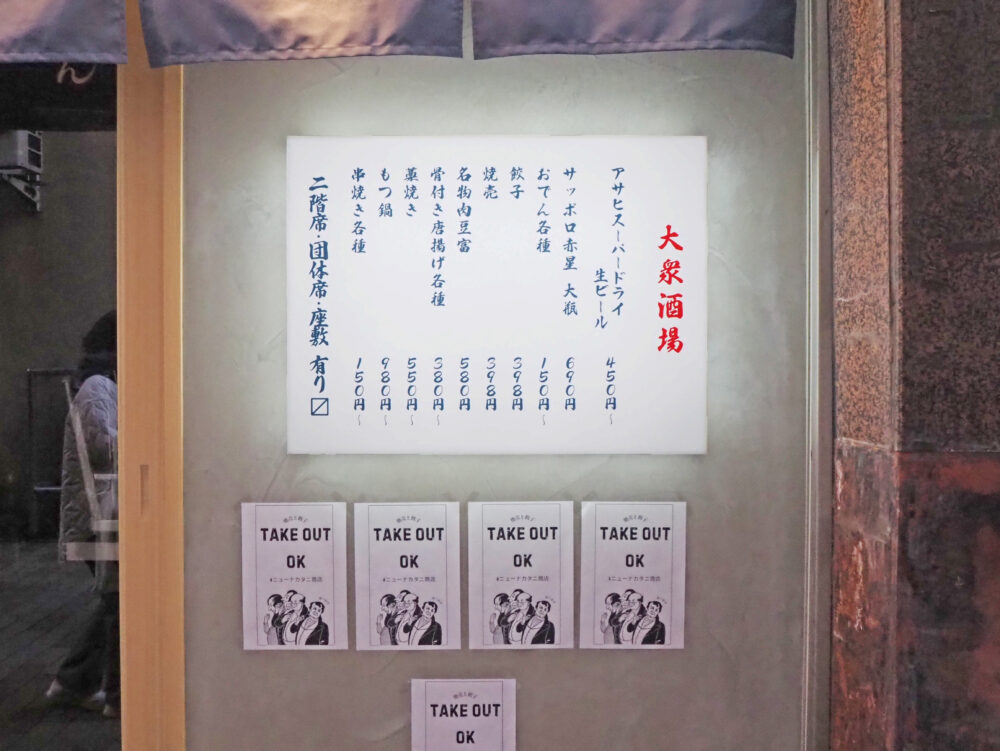 ん
大衆酒場
アサヒスーパードライ
生ビール 450円〜
サッポロ赤星 大瓶 690円
おでん各種 150円〜
餃子 398円
焼売 398円
名物肉豆富 580円
骨付き唐揚げ各種 380円〜
藁焼き 550円〜
もつ鍋 980円〜
串焼き各種 150円〜
二階席・団体席・座敷 有り〼
TAKE OUT
OK
#ニューナカタニ商店
TAKE OUT
OK
#ニューナカタニ商店
TAKE OUT
OK
#ニューナカタニ商店
TAKE OUT
OK
#ニューナカタニ商店
TAKE OUT
OK